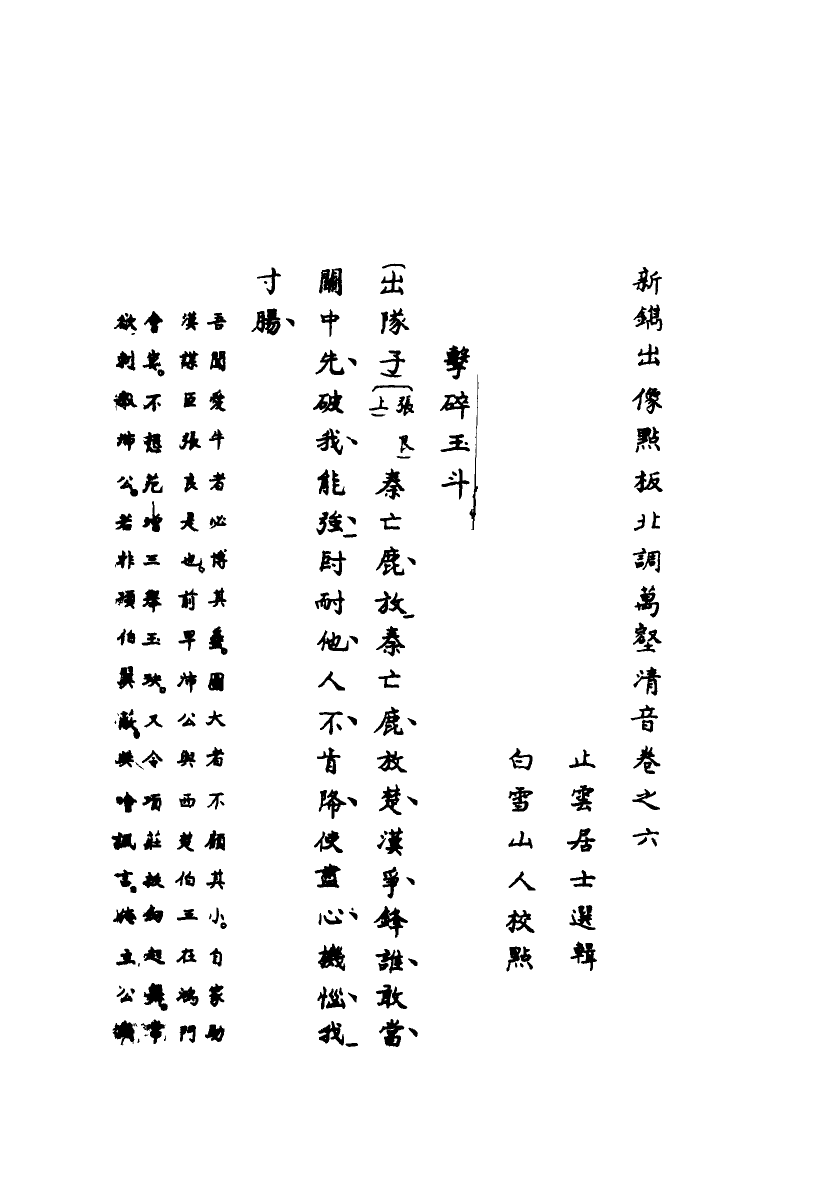 新鐫出像點板北調萬壑清音卷之六
止雲居士選輯
白雪山人校點
擊碎玉斗
(出隊子)(張良上)秦亡鹿、放秦亡鹿、放楚、漢爭、鋒誰、敢當、
關中先、破我、能強、尀耐他、人不、肯降、使盡心、機惱、我
寸腸、
吾聞愛牛者必博其蝱。圖大者不顧其小。自家助
漢謀臣張良是也。前早沛公與西楚伯王在鴻門
會宴。不想范增三舉玉玦。又令項莊拔劍起舞。常
欲刺 沛公。若非項伯翼蔽。 噲 言。 立公